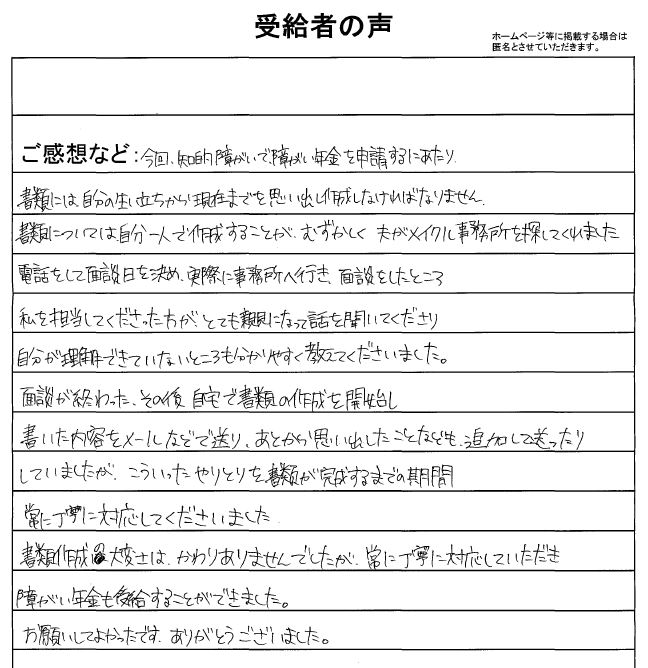 受給者の声
ホームページ等に掲載する場合は
匿名とさせていただきます。
ご感想など:今回、知的障がいで、障がい年金を申請するにあたり
書類には自分の生い立ちから現在までを思い出し作成しなければなりません。
書類については自分一人で作成することが、むずかしく 夫がメイクル事務所を探してくれました
電話をして面談日を決め、実際に事務所へ行き、面談をしたところ
私を担当してくださった方が、とても親身になって話を聞いてくださり
自分が理解できていないところも分かりやすく教えてくださいました。
面談が終わった、その後、自宅で書類の作成を開始し
書いた内容をメールなどで送り、あとから思い出したことなども、追加して送ったり
していましたが、こういったやりとりを、書類が完成するまでの期間
常に丁寧に対応してくださいました
書類作成の大変さは、かわりありませんでしたが、常に丁寧に対応していただき
障がい年金も受給することができました。
お願いしてよかったです。ありがとうございました。